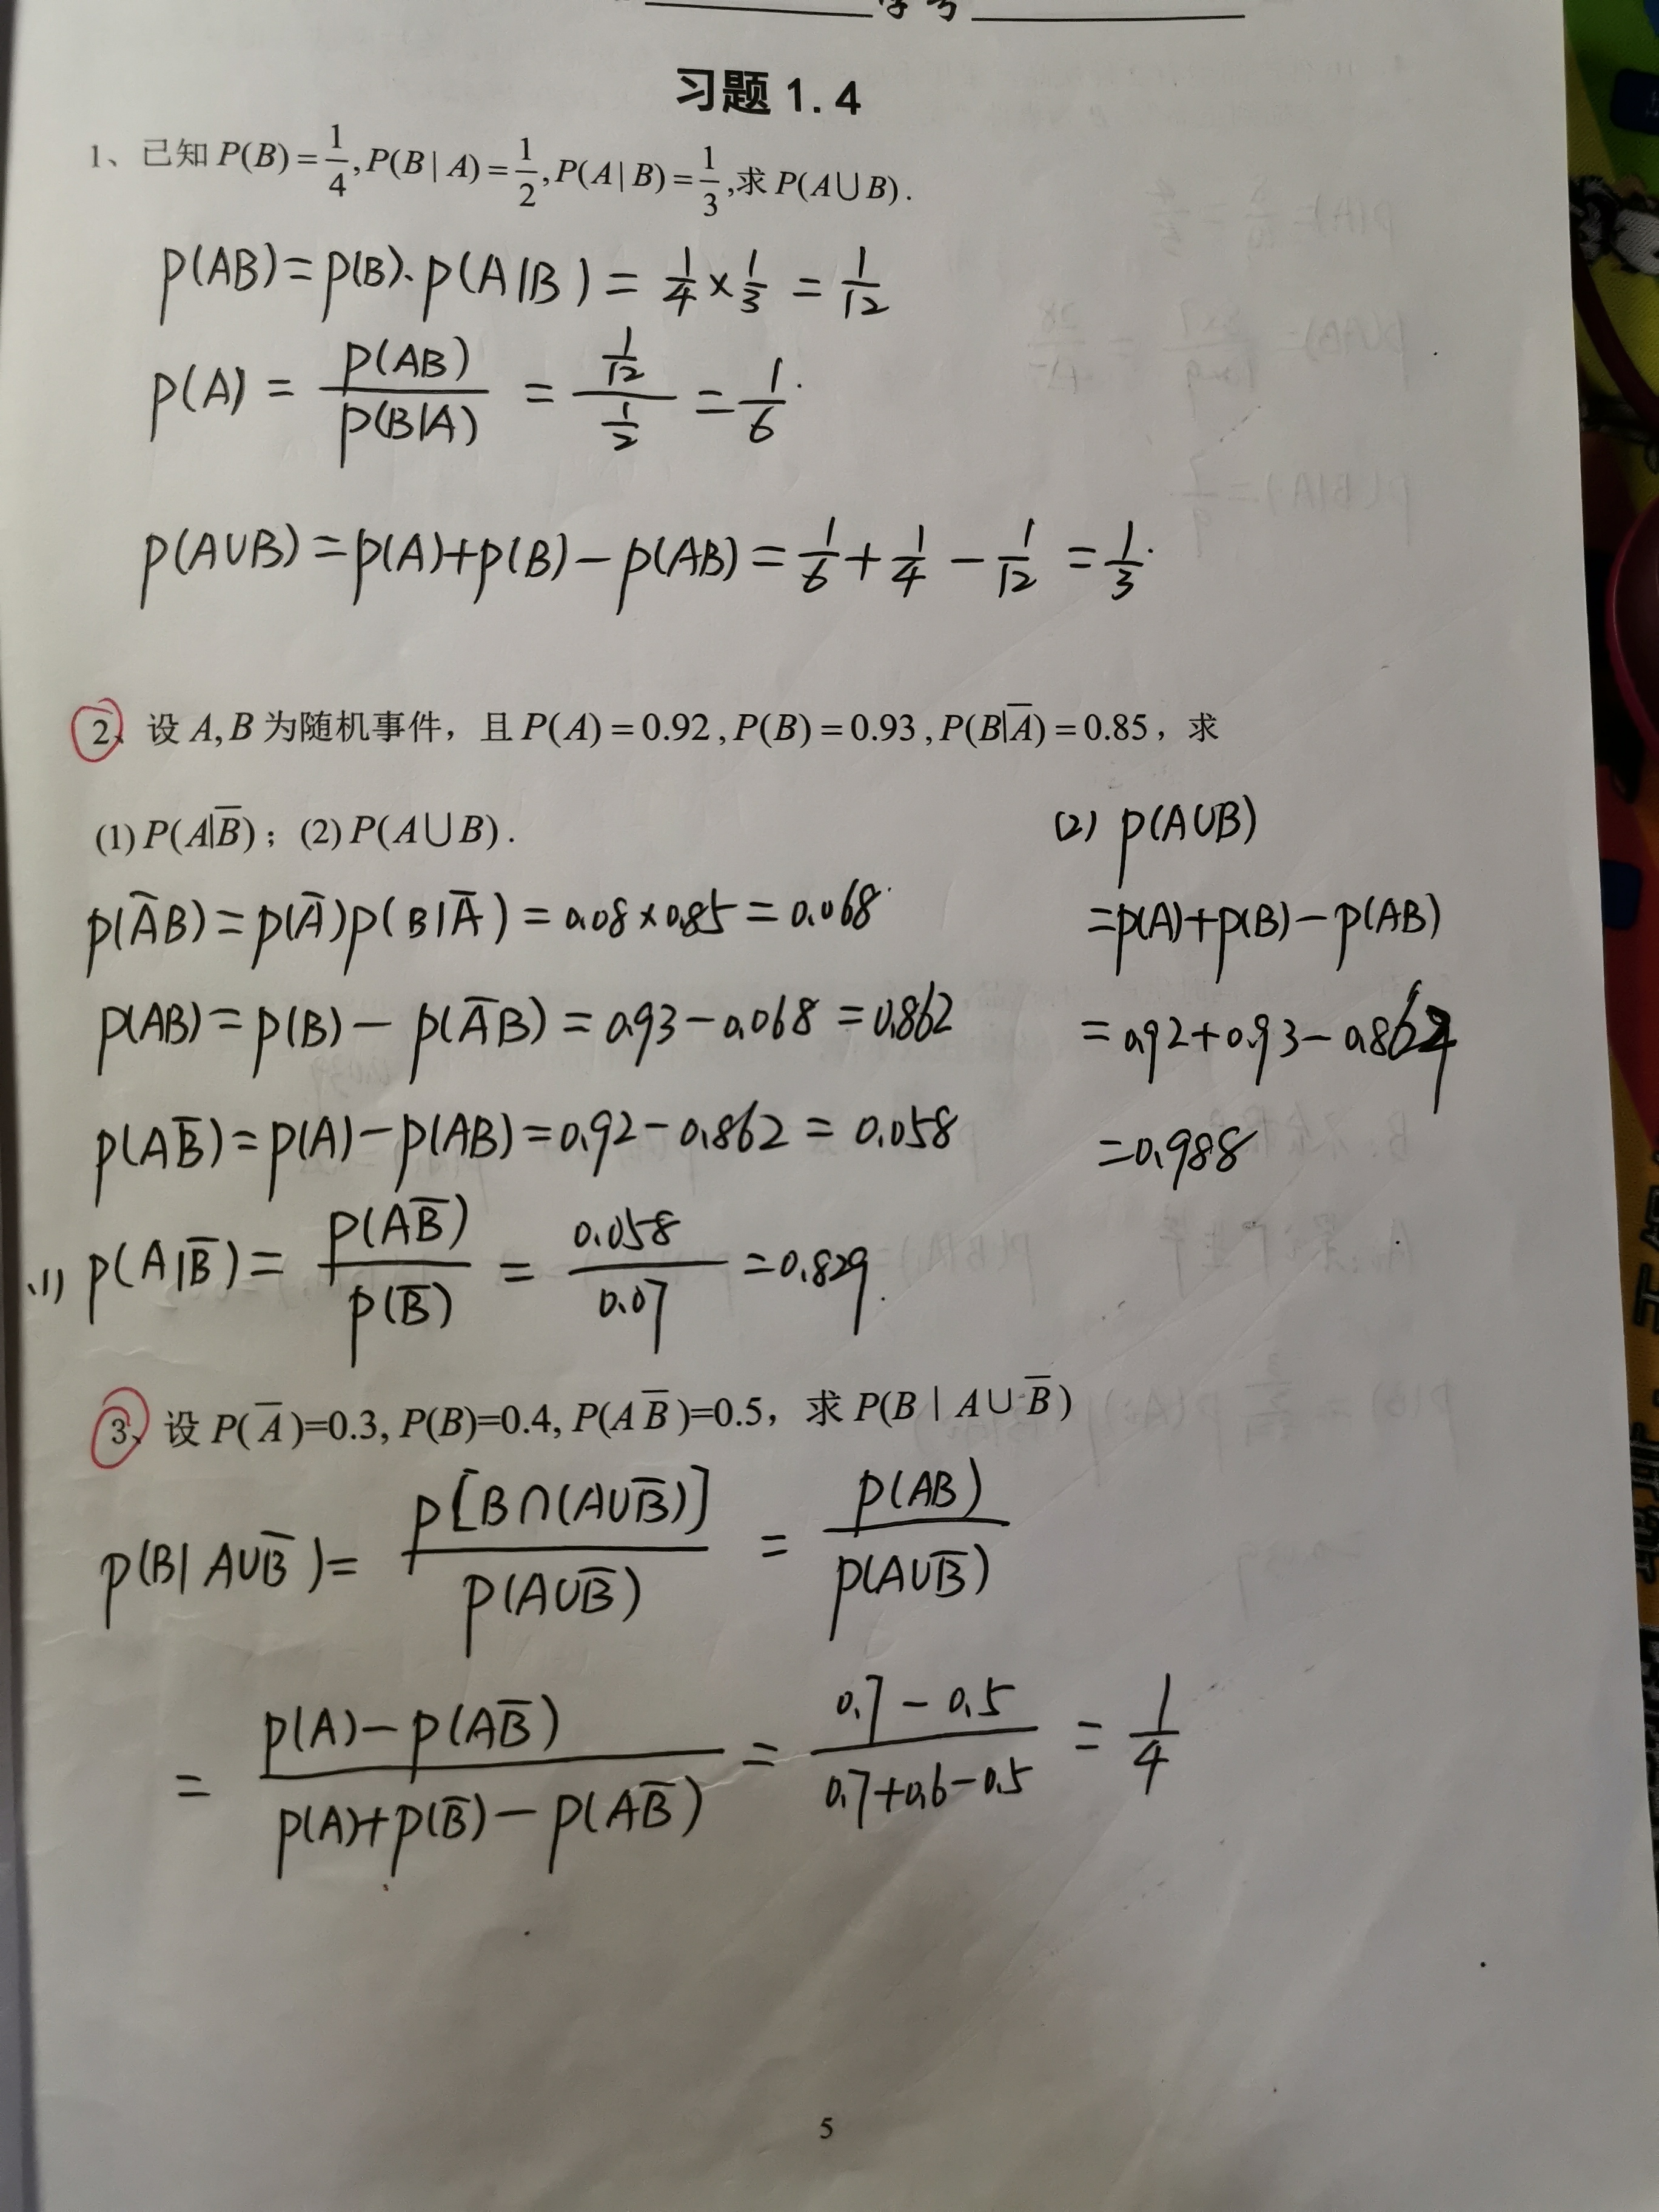 学号
习题 1.4
1、已知 P(B)=1/4, P(B|A)=1/2, P(A|B)=1/3, 求 P(A∪B).
P(AB)=P(B)·P(A|B)=1/4×1/3=1/12
P(A)=P(AB)/P(B|A)=(1/12)/(1/2)=1/6.
P(A∪B)=P(A)+P(B)-P(AB)=1/6+1/4-1/12=1/3.
2、设 A,B 为随机事件，且 P(A)=0.92, P(B)=0.93, P(B|A̅)=0.85，求
(1) P(A|B̅)；(2) P(A∪B).
P(A̅B)=P(A̅)P(B|A̅)=0.08×0.85=0.068
P(AB)=P(B)-P(A̅B)=0.93-0.068=0.862
P(AB̅)=P(A)-P(AB)=0.92-0.862=0.058
(1) P(A|B̅)=P(AB̅)/P(B̅)=0.058/0.07=0.829.
(2) P(A∪B)
=P(A)+P(B)-P(AB)
=0.92+0.93-0.862
=0.988
3、设 P(A̅)=0.3, P(B)=0.4, P(AB̅)=0.5，求 P(B | A∪B̅)
P(B|A∪B̅)=P[B∩(A∪B̅)]/P(A∪B̅)=P(AB)/P(A∪B̅)
=(P(A)-P(AB̅))/(P(A)+P(B̅)-P(AB̅))=(0.7-0.5)/(0.7+0.6-0.5)=1/4
5